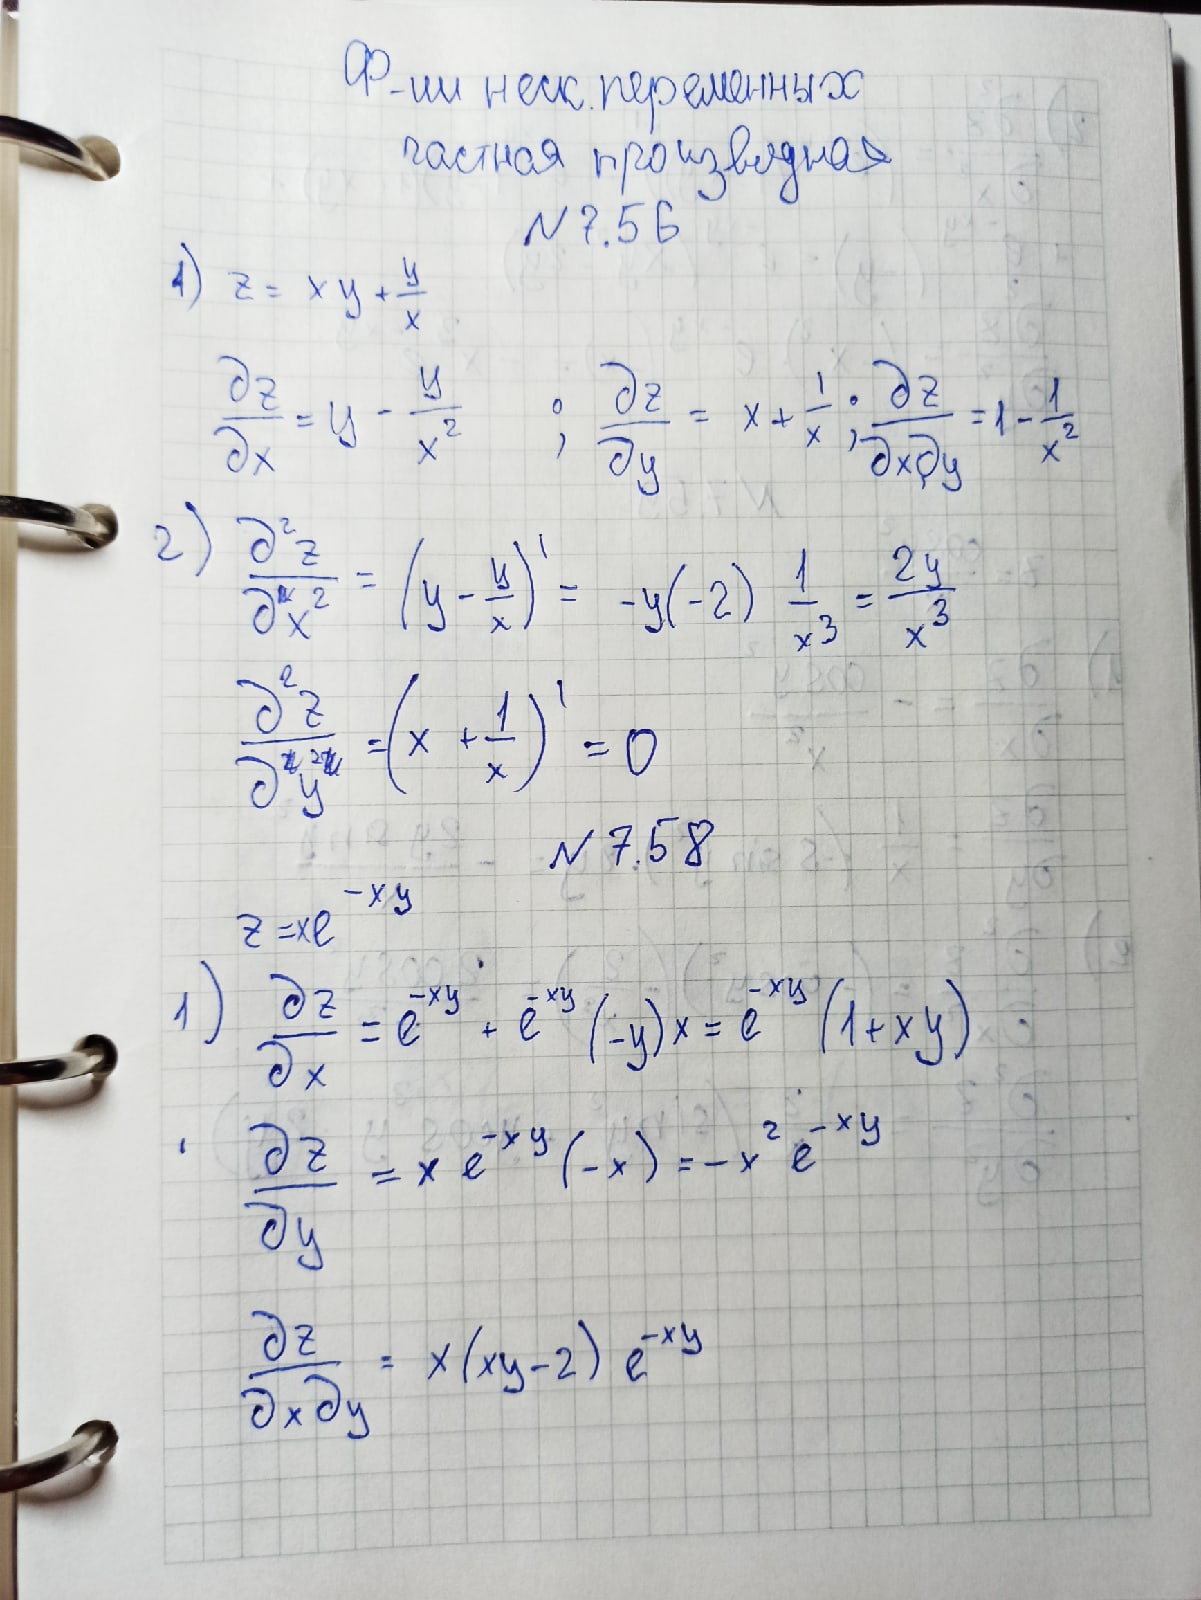 Ф-ии неск. переменных
частная производная
N 7.56
1) z = xy + y/x
∂z/∂x = y - y/x² ; ∂z/∂y = x + 1/x ; ∂z/∂x∂y = 1 - 1/x²
2) ∂²z/∂x² = (y - y/x)' = -y(-2) 1/x³ = 2y/x³
∂²z/∂y² = (x + 1/x)' = 0
N 7.58
z = xe^(-xy)
1) ∂z/∂x = e^(-xy) + e^(-xy) (-y)x = e^(-xy) (1+xy)
∂z/∂y = x e^(-xy) (-x) = -x² e^(-xy)
∂z/∂x∂y = x(xy-2) e^(-xy)